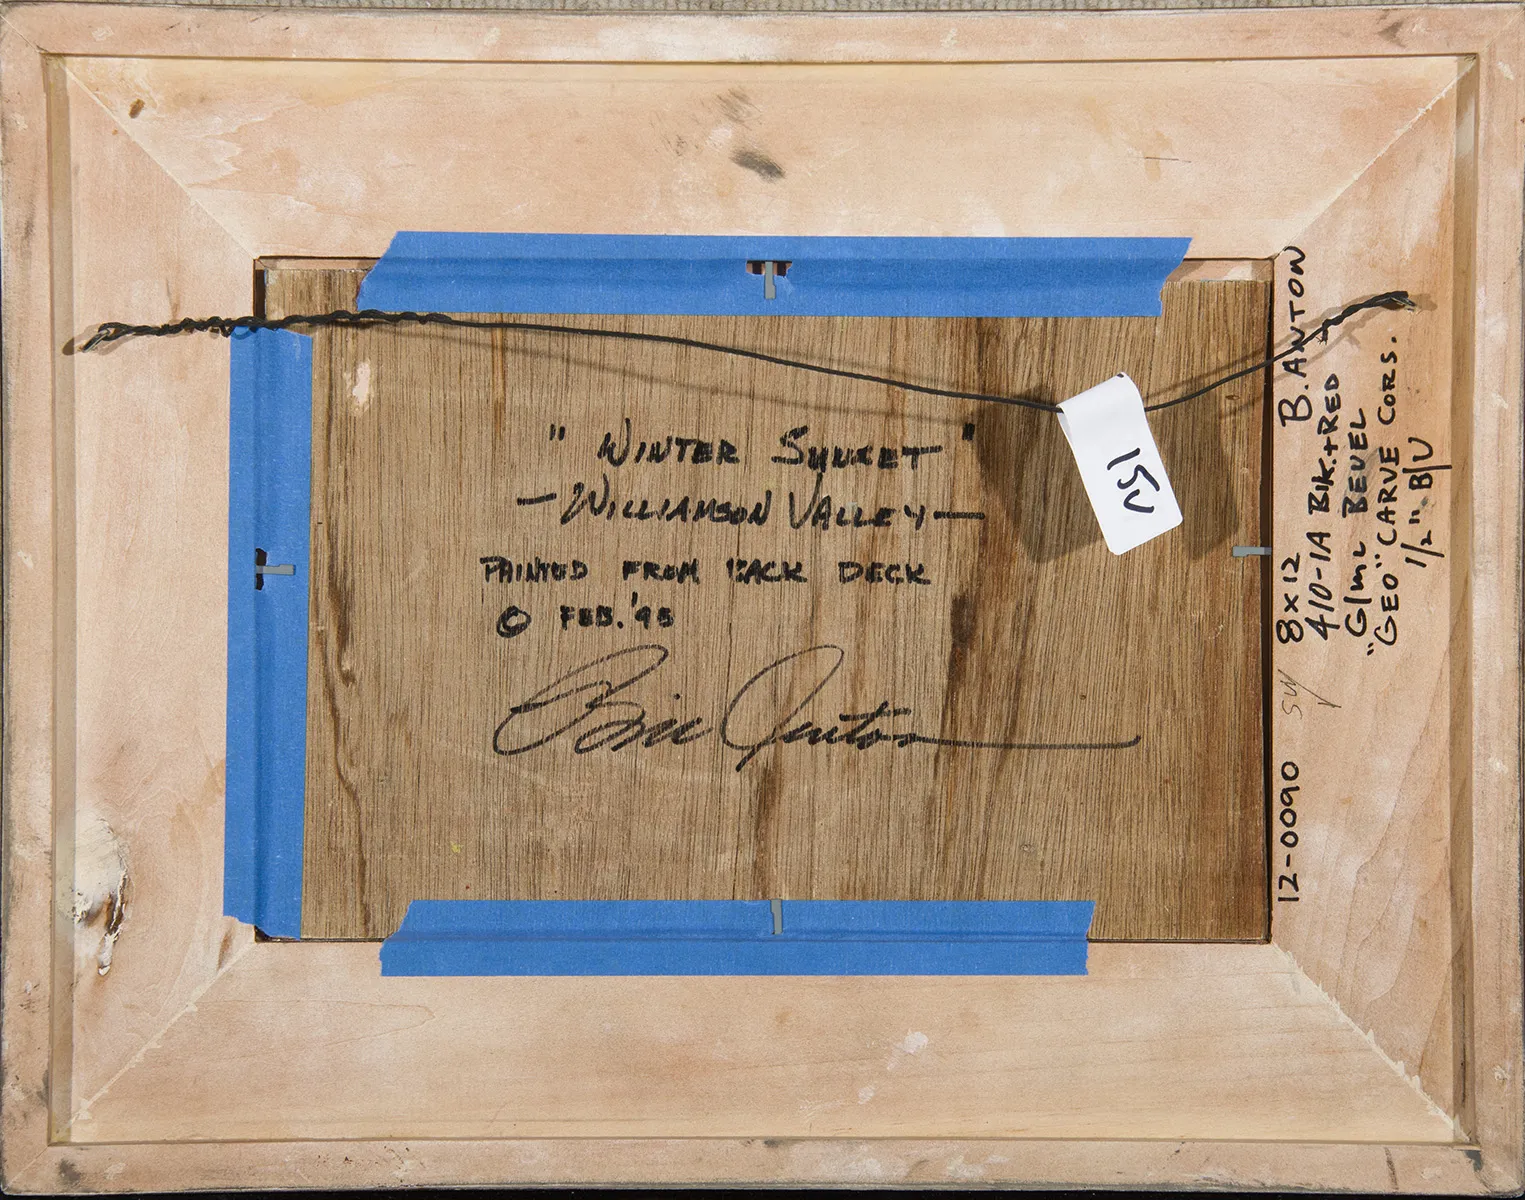 " WINTER SUNSET "
— WILLIAMSON VALLEY —
PAINTED FROM BACK DECK
© FEB. '95
Bill Anton
15
B. ANTON
8x12
410-1A BLK.+RED
G/ML BEVEL
"GEO" CARVE CORS.
1/2" B/U
12-0090